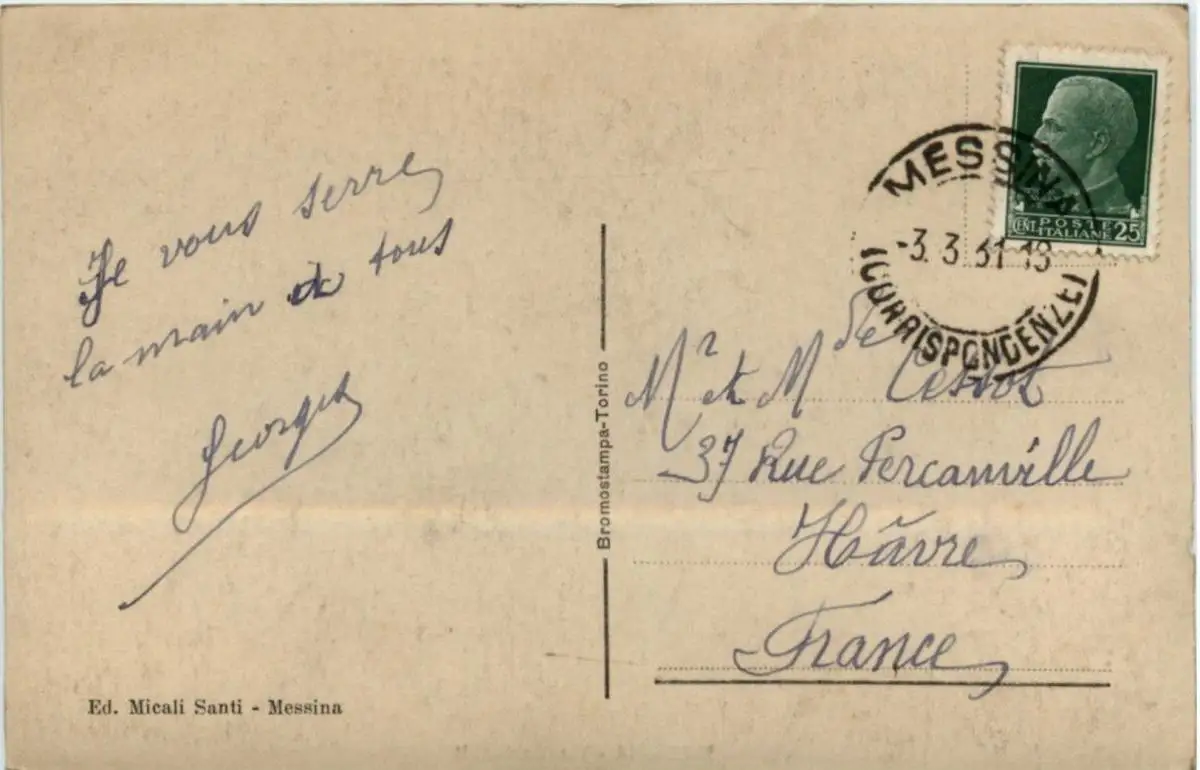 Je vous serre
la main à tous
Georges
Ed. Micali Santi - Messina
Bromostampa-Torino
POSTE
ITALIANE
CENT. 25
MESSINA
-3. 3 31 18
(CORRISPONDENZE)
Mr et Mde
37 Rue Percanville
Hâvre
France